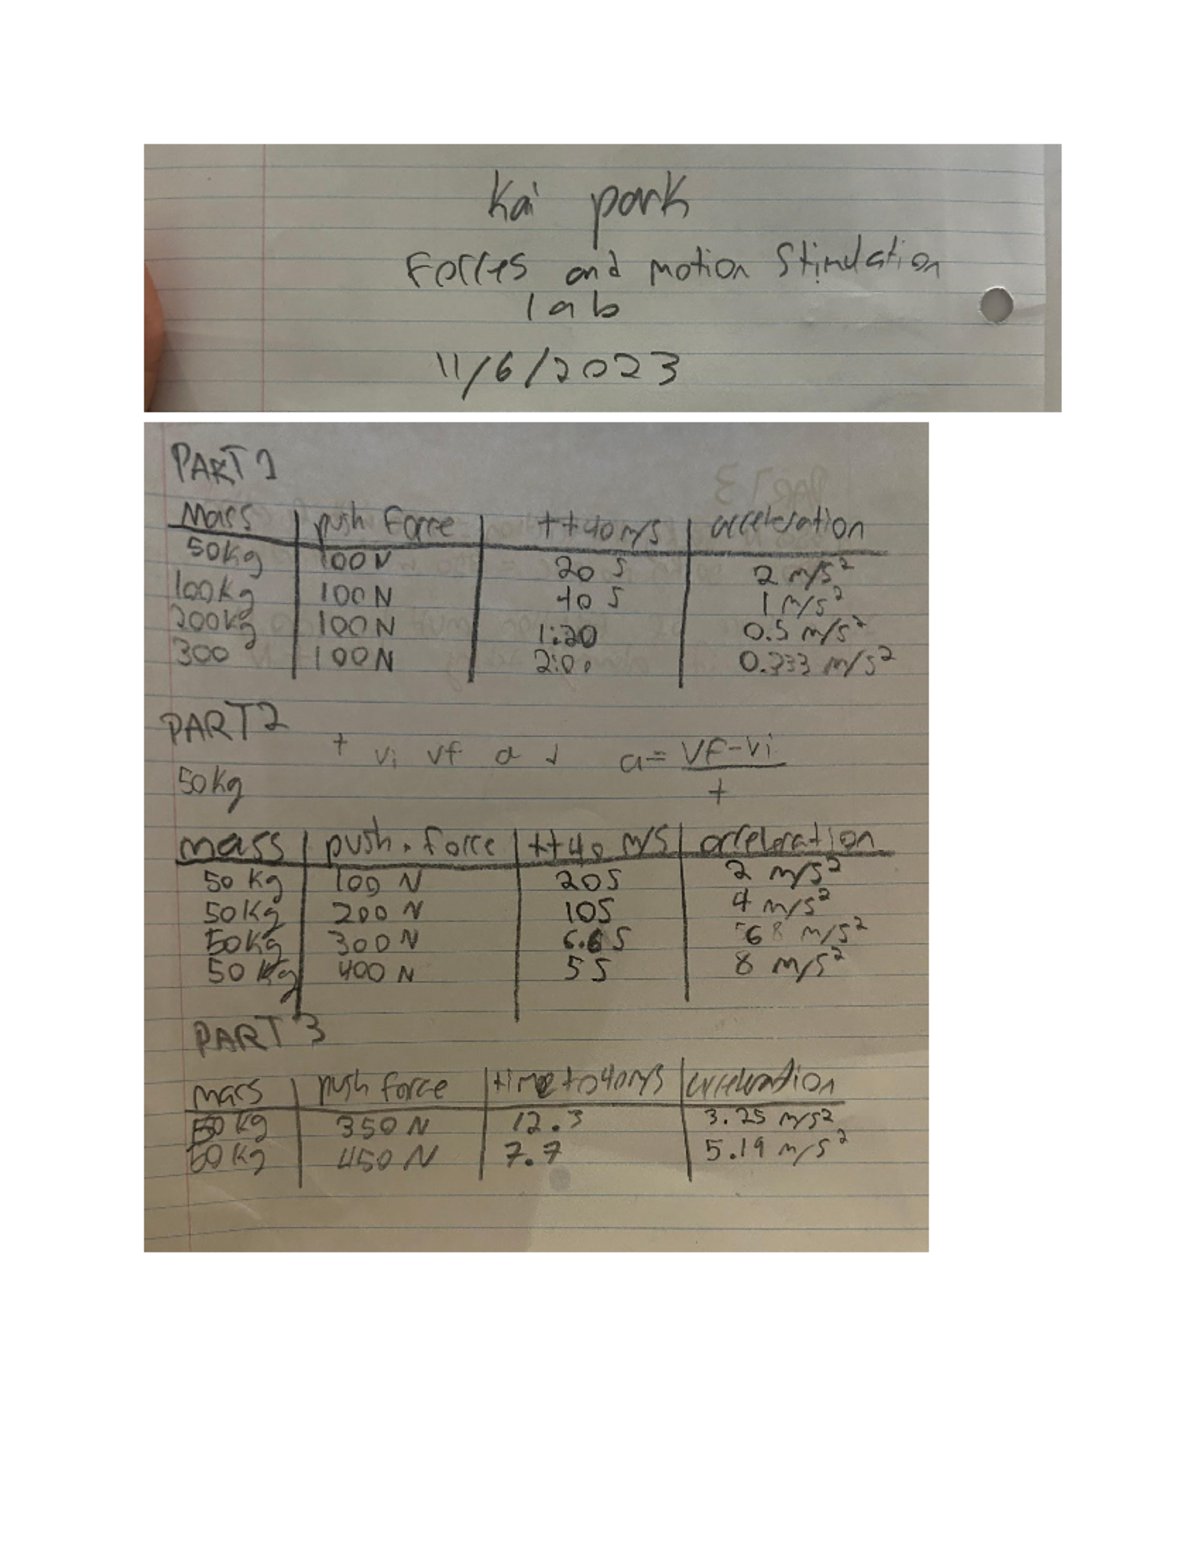 Kai park
Forces and motion Stimulation
lab
11/6/2023
PART 1
Mass push force tt40 m/s acceleration
50kg 100N 20 S 2 m/s²
100kg 100N 40 S 1 m/s²
200kg 100N 1:20 0.5 m/s²
300 100N 2:00 0.333 m/s²
PART 2
t vi vf a d a= VF-Vi
t
50kg
mass push. force tt40 m/s acceleration
50 kg 100 N 20S 2 m/s²
50kg 200 N 10S 4 m/s²
50kg 300 N 6.6 S 6 m/s²
50 kg 400 N 5 S 8 m/s²
PART 3
mass push force time to 40m/s acceleration
50 kg 350 N 12.3 3.25 m/s²
kg 450 N 7.7 5.19 m/s²